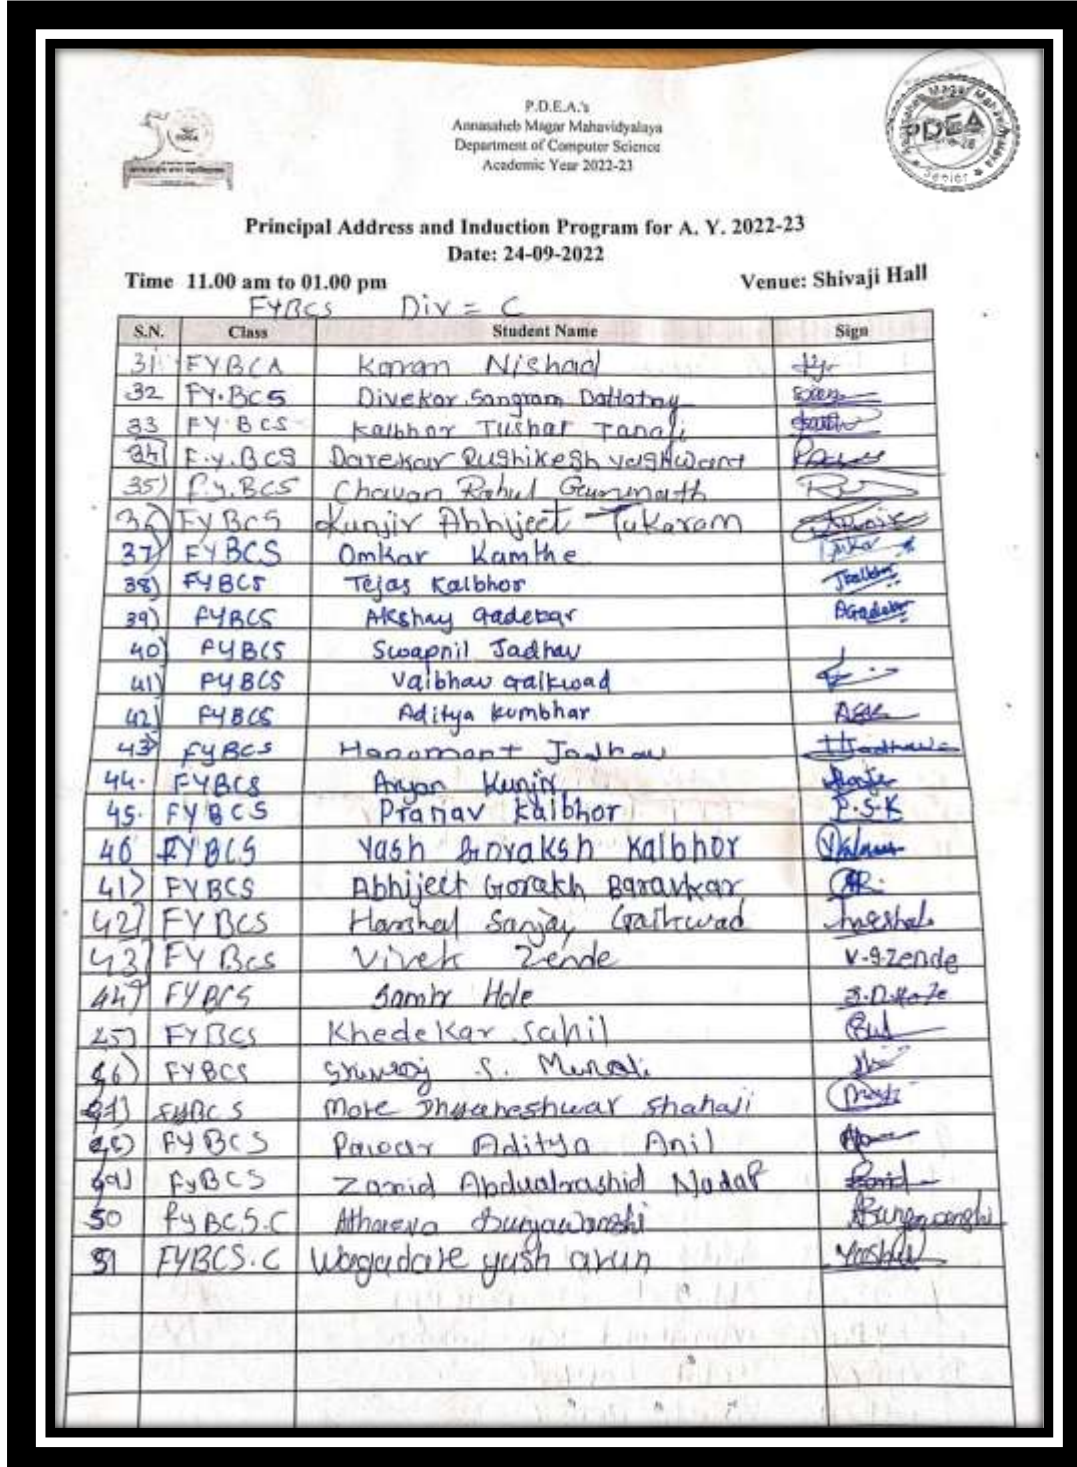 P.D.E.A.'s
Annasaheb Magar Mahavidyalaya
Department of Computer Science
Academic Year 2022-23
PDEA
Senior
Principal Address and Induction Program for A. Y. 2022-23
Date: 24-09-2022
Time 11.00 am to 01.00 pm Venue: Shivaji Hall
FYBCS Div = C
S.N. Class Student Name Sign
31 FYBCA Karan Nishad
32 FY.BCS Divekar Sangram Dattatray
33 FY.BCS Kalbhor Tushar Tanaji
34) F.y.BCS Darekar Rushikesh yashwant
35) F.y.BCS Chavan Rahul Gunmath
36) FyBCS Kunjir Abhijeet Tukaram
37) FYBCS Omkar Kamthe
38) FYBCS Tejas Kalbhor Tkalbhor
39) FYBCS Akshay Gadekar AGadekar
40) FYBCS Swapnil Jadhav
41) FYBCS Vaibhav Gaikwad
42) FYBCS Aditya Kumbhar
43) FYBCS Hanamant Jadhav HJadhav
44. FYBCS Aryan Kunjir
45. FYBCS Pranav Kalbhor P.S.K
46 FYBCS Yash Goraksh Kalbhor
41) FYBCS Abhijeet Gorakh Baravkar
42) FYBCS Harshal Sanjay Gaikwad Harshal
43) FYBCS Vivek Zende V.G.Zende
44) FYBCS Samir Hole S.D.Hole
45) FYBCS Khedekar Sahil
46) FYBCS S.
47) FYBCS More Dhyaneshwar Shahaji
48) FYBCS Pawar Aditya Anil
49) FyBCS Zamid Abdualrashid Nadaf
50 FyBCS.C Atharva Suryawanshi ASuryawanshi
51 FYBCS.C Wagadare yash arun